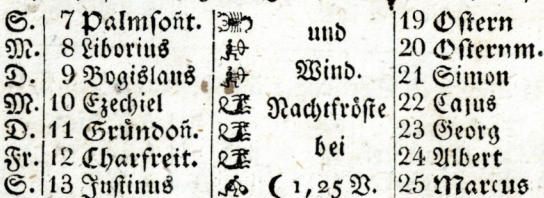 S. 7 Palmsoñt. und 19 Ostern
M. 8 Liborius 20 Osternm.
D. 9 Bogislaus Wind. 21 Simon
M. 10 Ezechiel Nachtfröste 22 Cajus
D. 11 Gründoñ. 23 Georg
Fr. 12 Charfreit. bei 24 Albert
S. 13 Justinus ( 1, 25 V. 25 Marcus